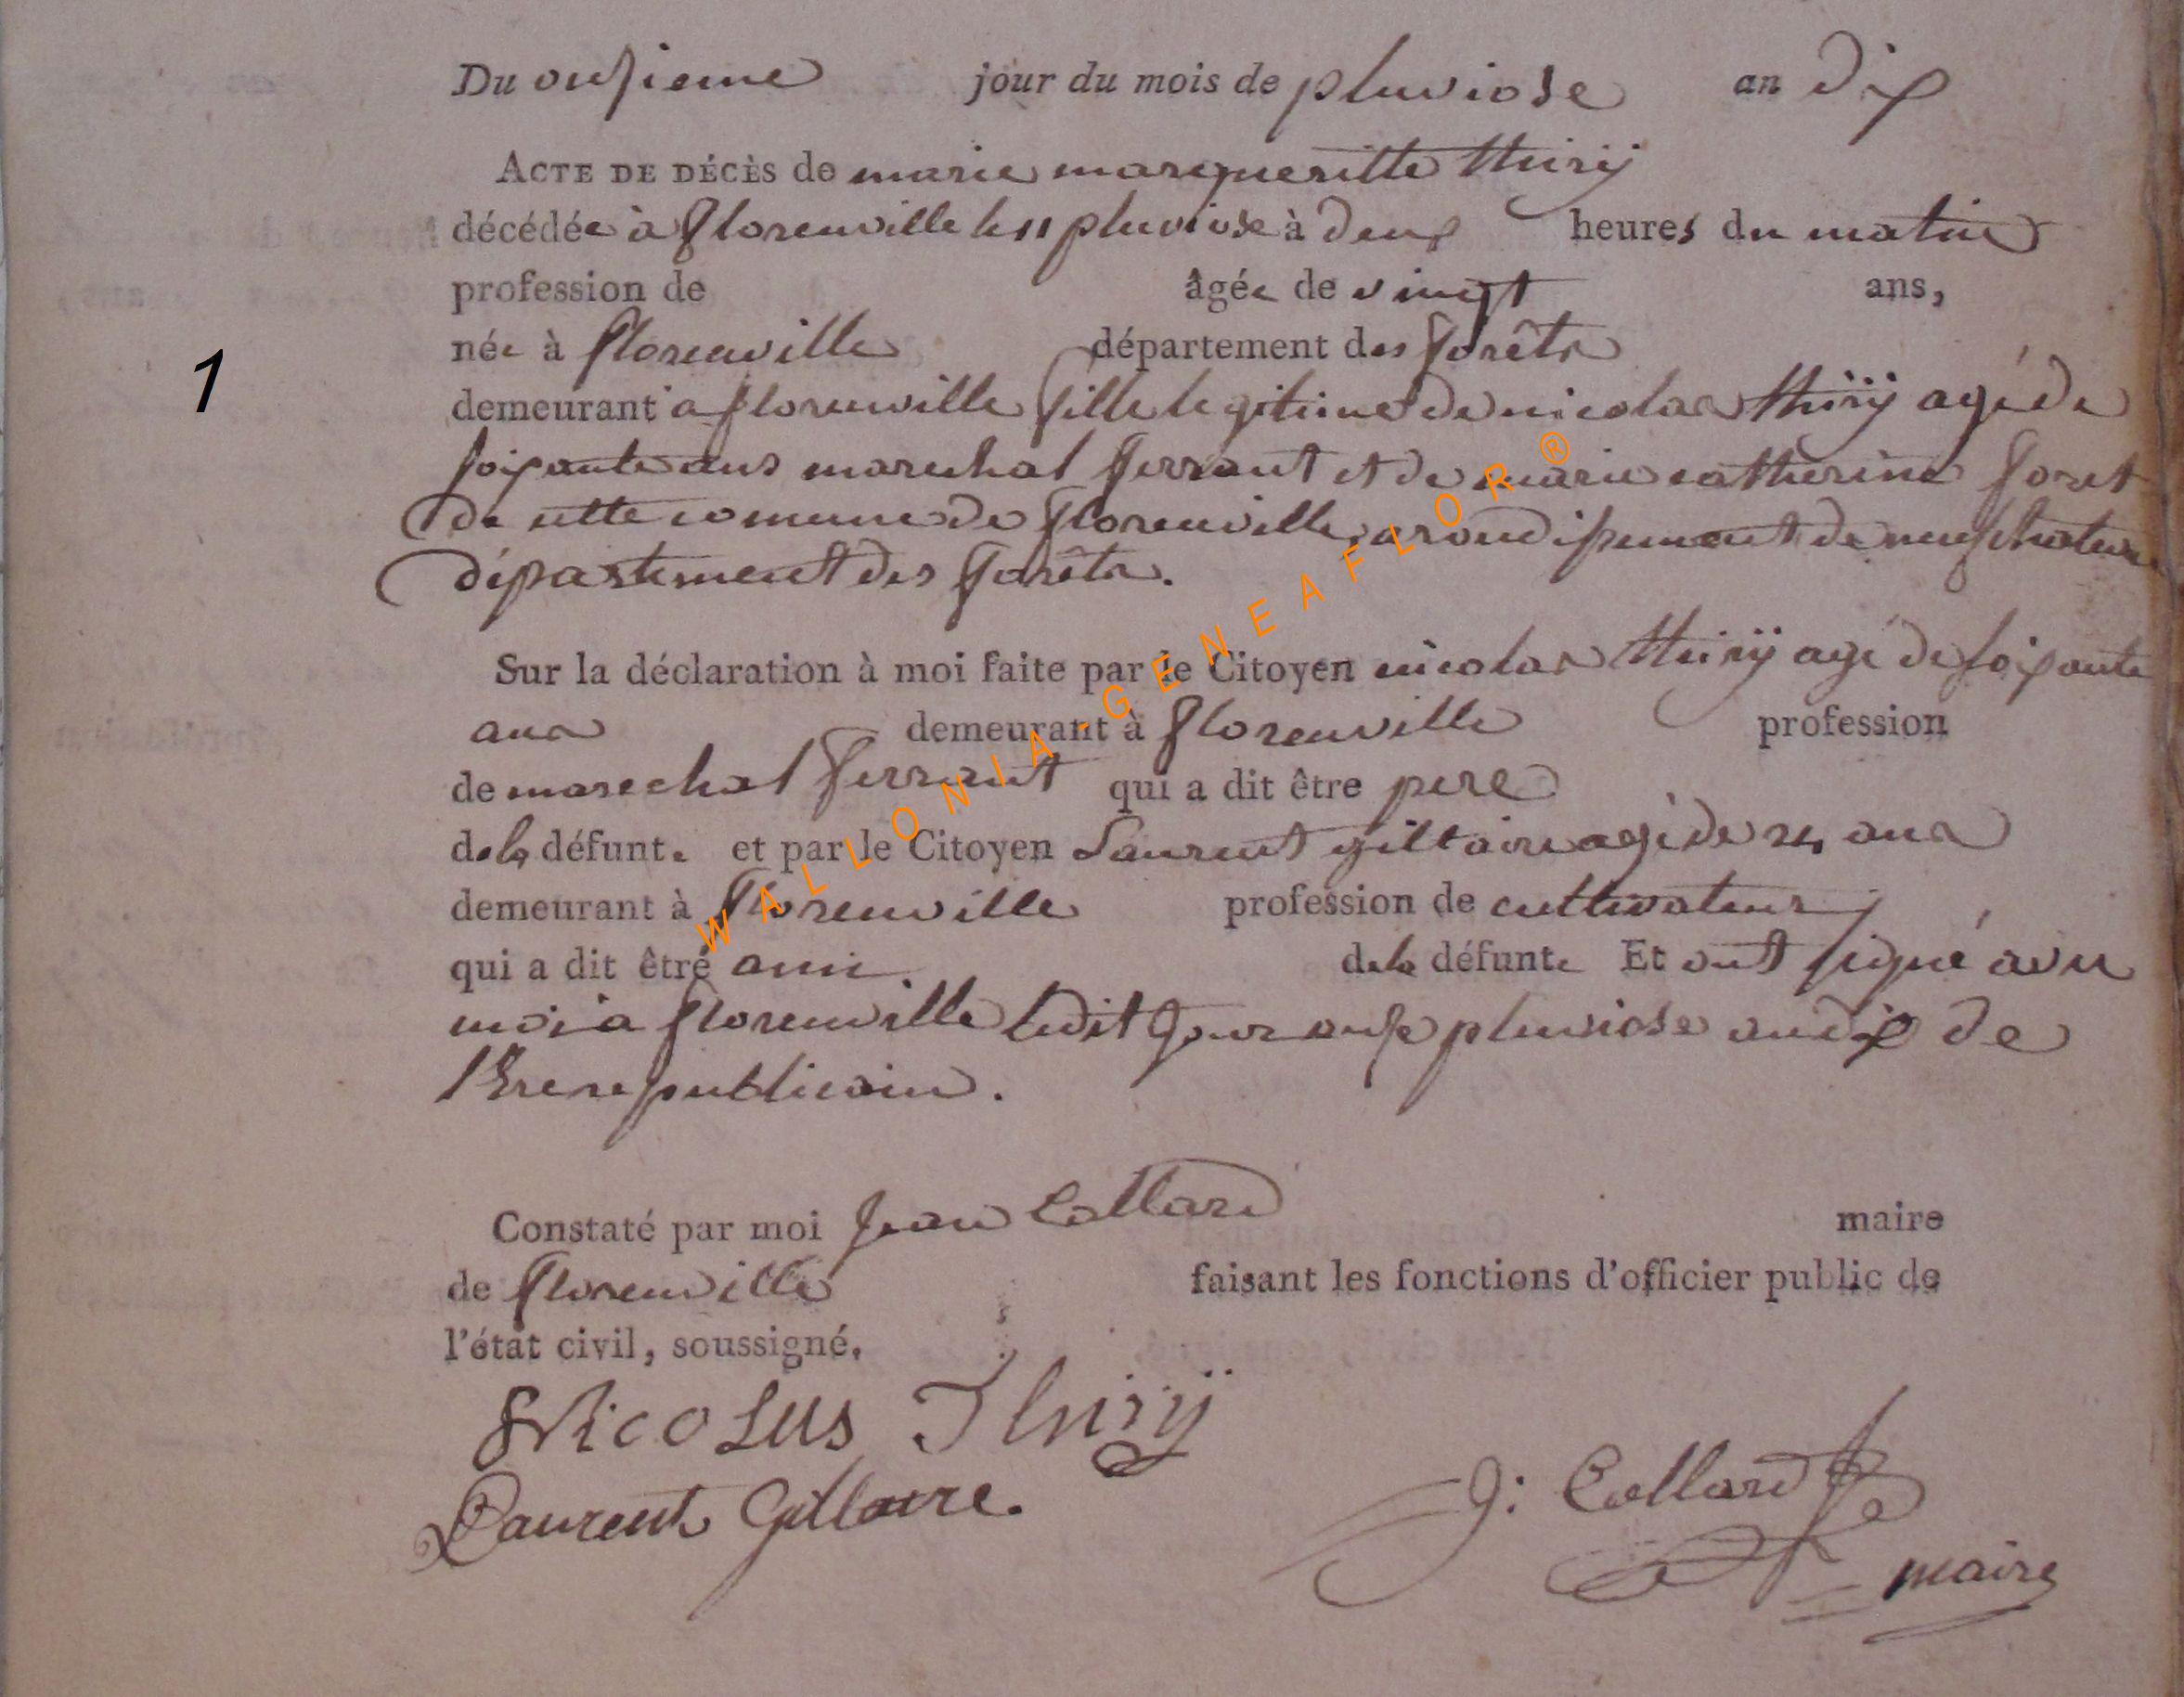 Du onsieme jour du mois de pluviose an dix
ACTE DE DÉCÈS de marie margueritte thirÿ
décédée à florenville le 11 pluviose à deux heures du matin
profession de âgée de vingt ans,
née à florenville département des forêts
1
demeurant a florenville fille legitime de nicolas thirÿ agé de
soixante ans marechal ferrant et de marie catherine foret
de cette comune de florenville, arondissement de neufchateau
département des forêts.
Sur la déclaration à moi faite par le Citoyen nicolas thirÿ agé de soixante
ans demeurant à florenville profession
de marechal ferrant qui a dit être pere
de la défunte et par le Citoyen Laurent gillaire agé de 24 ans
demeurant à florenville profession de cultivateur
qui a dit être ami de la défunte Et ont signé avec
moi a florenville ledit jour onse pluviose an dix de
l'Ere republicain.
Constaté par moi Jean Collard maire
de florenville faisant les fonctions d'officier public de
l'état civil, soussigné.
NicoLus Thirÿ
Laurent Gillaire.
J: Collard
maire
WALLONIA-GENEAFLOR ®